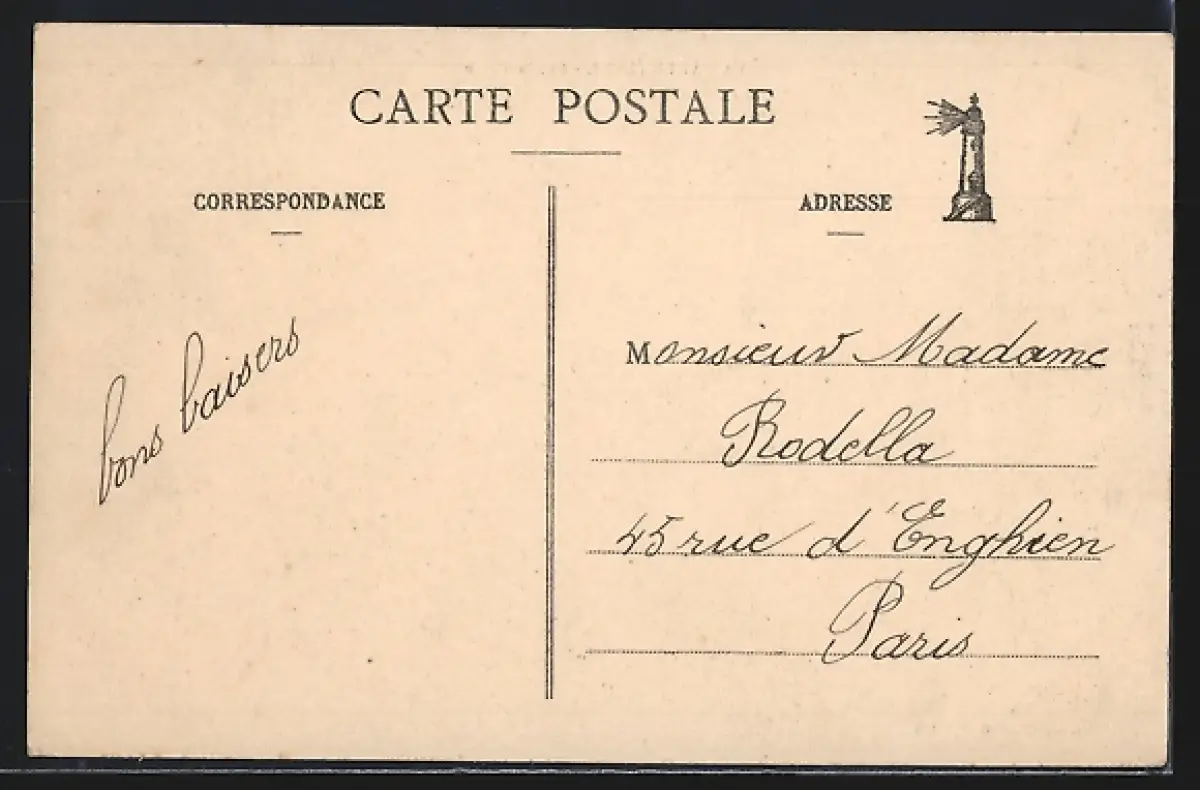 CARTE POSTALE
CORRESPONDANCE
ADRESSE
bons baisers
Monsieur Madame
Rodella
45 rue d'Enghien
Paris